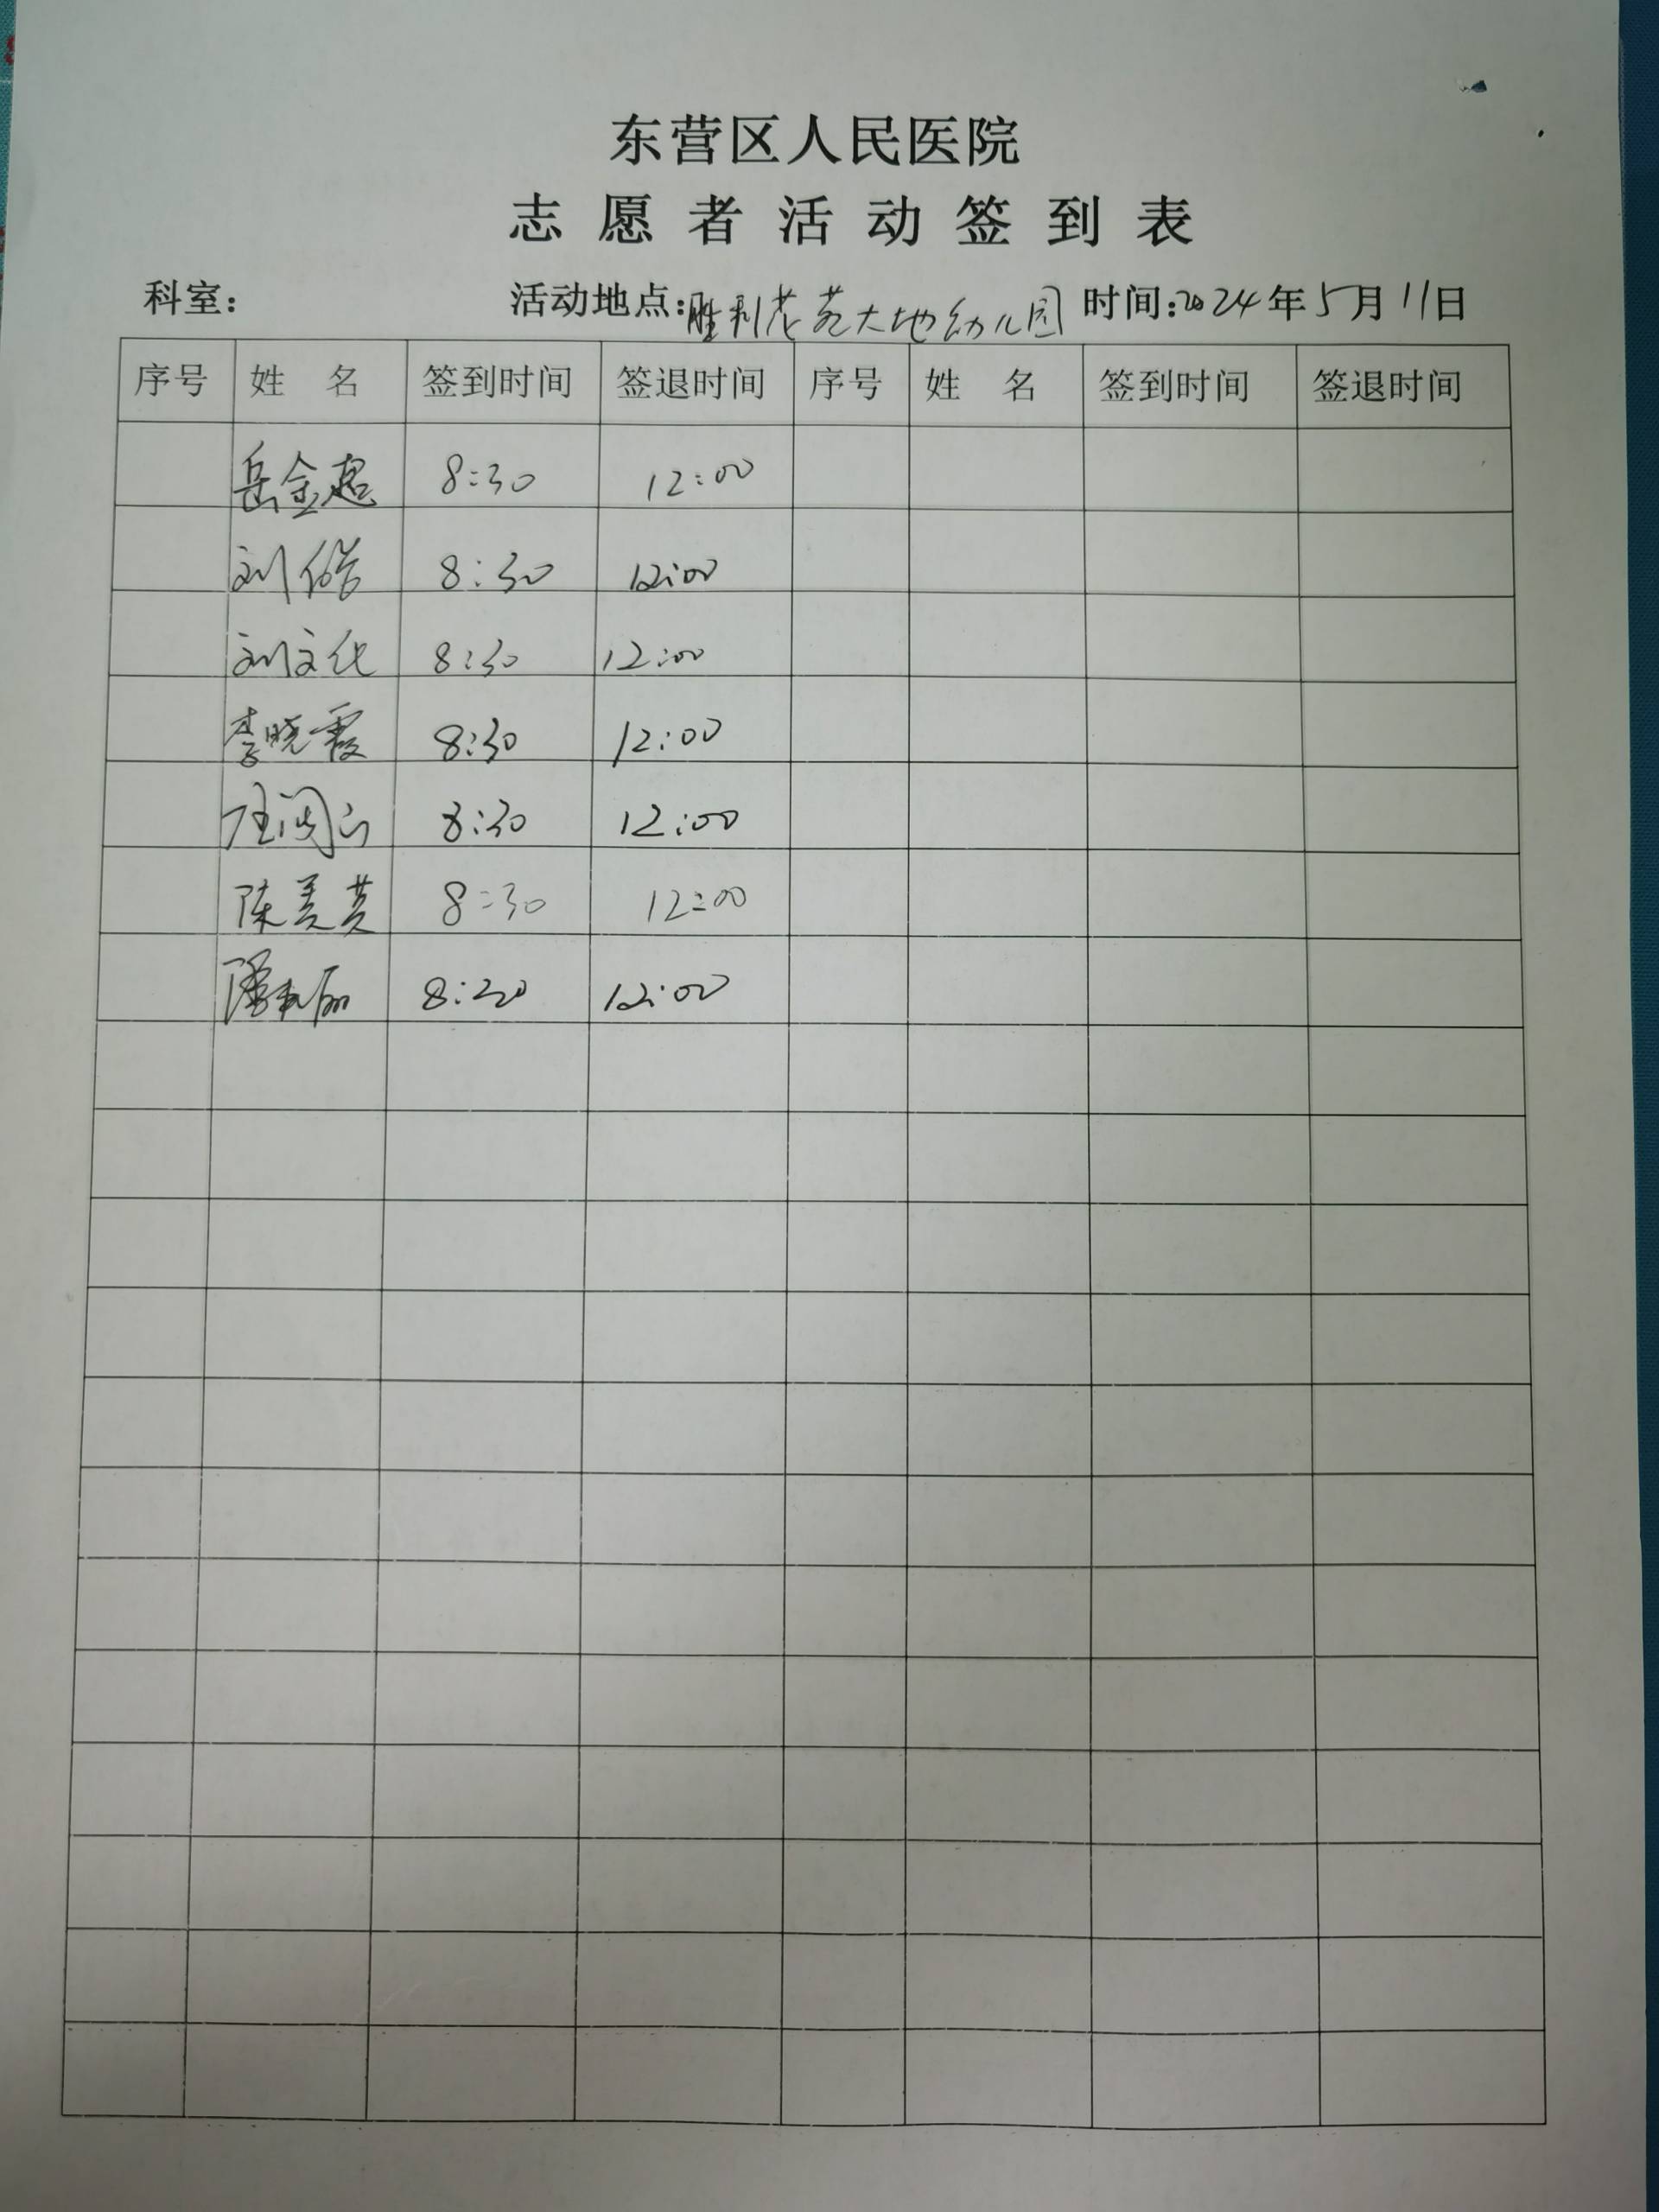 东营区人民医院
志愿者活动签到表
科室： 活动地点：胜利花苑大地幼儿园 时间：2024年5月11日
序号 姓 名 签到时间 签退时间 序号 姓 名 签到时间 签退时间
岳金超 8:30 12:00
刘 8:30 12:00
刘文化 8:30 12:00
李晓霞 8:30 12:00
8:30 12:00
陈美英 8:30 12:00
潘 8:30 12:00